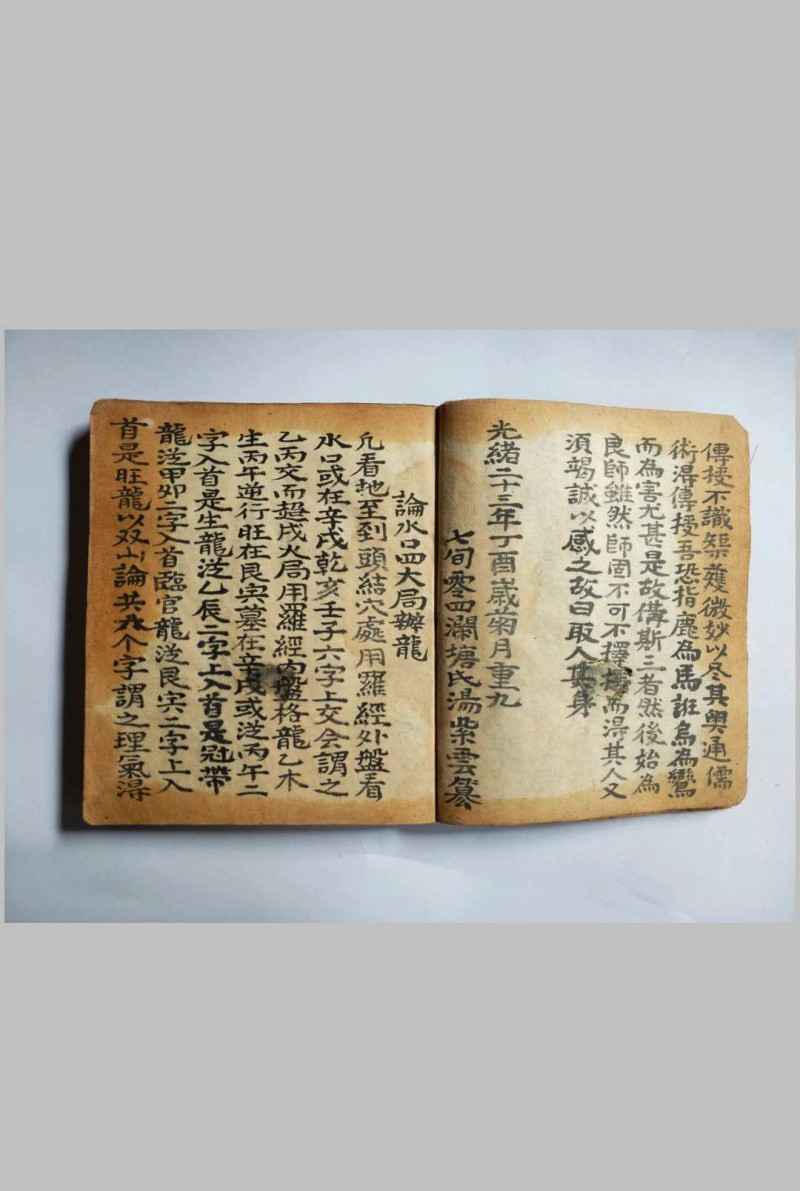 傳授不識榘蒦微妙以冬其奧通儒
術淂傳授吾恐指鹿為馬誑烏為鸞
而為害尤甚是故俻斯三者然後始為
良師雖然師固不可不擇擇而淂其人又
須竭誠以感之故曰取人其身
光緒二十三年丁酉歲菊月重九
七旬零四瀾塘氏湯紫雲纂
論水口四大局辦龍
凢看地至到頭結穴處用羅經外盤看
水口或在辛戌乾亥壬子六字上交会謂之
乙丙交而趨戌火局用羅經內盤格龍乙木
生丙午逆行旺在艮寅墓在辛戌或泛丙午二
字入首是生龍泛乙辰二字上入首是冠帶
龍泛甲卯二字入首臨官龍泛艮寅二字上入
首是旺龍以双山論共个字謂之理氣淂